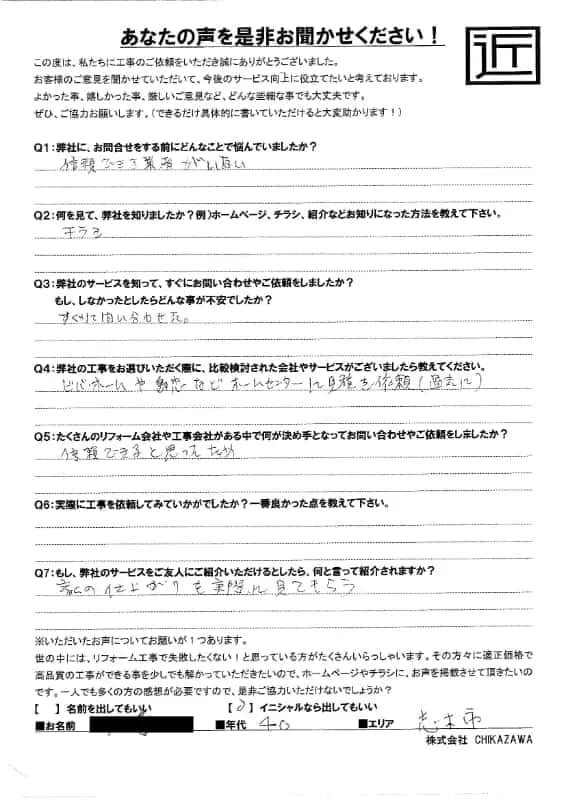 あなたの声を是非お聞かせください！
近
この度は、私たちに工事のご依頼をいただき誠にありがとうございました。
お客様のご意見を聞かせていただいて、今後のサービス向上に役立てたいと考えております。
よかった事、嬉しかった事、厳しいご意見など、どんな些細な事でも大丈夫です。
ぜひ、ご協力お願いします。（できるだけ具体的に書いていただけると大変助かります！）
Q1：弊社に、お問合せをする前にどんなことで悩んでいましたか？
信頼できる業者がいない
Q2：何を見て、弊社を知りましたか？例）ホームページ、チラシ、紹介などお知りになった方法を教えて下さい。
チラシ
Q3：弊社のサービスを知って、すぐにお問い合わせやご依頼をしましたか？
もし、しなかったとしたらどんな事が不安でしたか？
すぐに問い合わせた。
Q4：弊社の工事をお選びいただく際に、比較検討された会社やサービスがございましたら教えてください。
ビバホームや などホームセンターに見積を依頼（過去に）
Q5：たくさんのリフォーム会社や工事会社がある中で何が決め手となってお問い合わせやご依頼をしましたか？
信頼できると思ったため
Q6：実際に工事を依頼してみていかがでしたか？一番良かった点を教えて下さい。
Q7：もし、弊社のサービスをご友人にご紹介いただけるとしたら、何と言って紹介されますか？
の仕上がりを実際に見てもらう
※いただいたお声についてお願いが１つあります。
世の中には、リフォーム工事で失敗したくない！と思っている方がたくさんいらっしゃいます。その方々に適正価格で
高品質の工事ができる事を少しでも解かっていただきたいので、ホームページやチラシに、お声を掲載させて頂きたいの
です。一人でも多くの方の感想が必要ですので、是非ご協力いただけないでしょうか？
【　】名前を出してもいい 【 】イニシャルなら出してもいい
■お名前 ■年代 40 ■エリア 志木市
株式会社 CHIKAZAWA